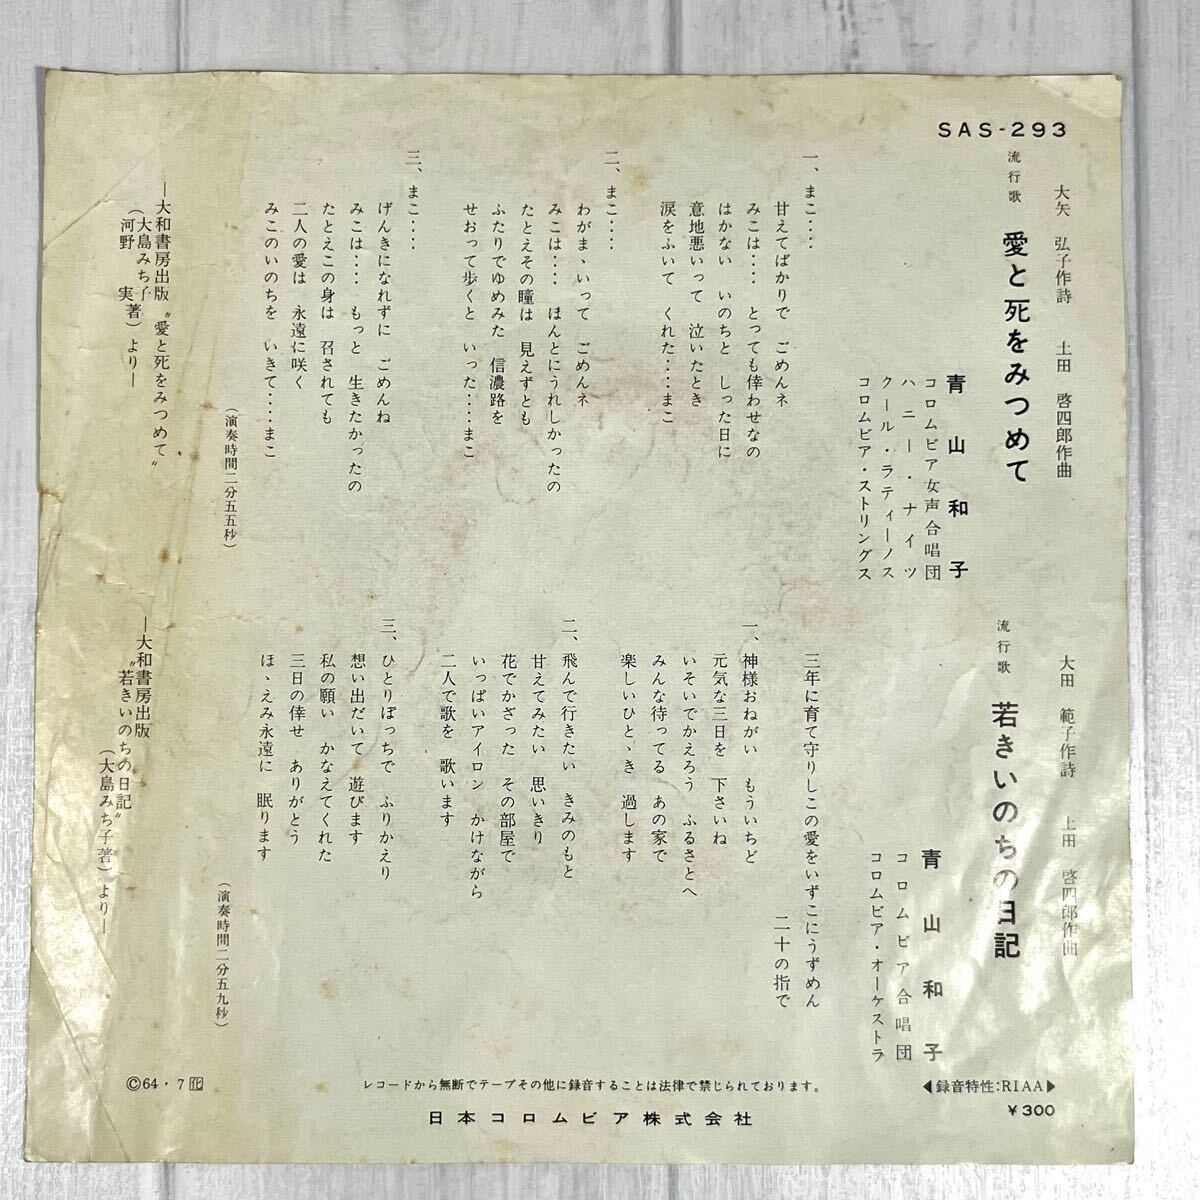 SAS-293
大矢 弘子作詩 土田 啓四郎作曲
流行歌 愛と死をみつめて
青山和子
コロムビア女声合唱団
ハニー・ナイツ
クール・ラティーノス
コロムビア・ストリングス
一、まこ‥‥
甘えてばかりで ごめんネ
みこは‥‥ とっても倖わせなの
はかない いのちと しった日に
意地悪いって 泣いたとき
涙をふいて くれた‥‥まこ
二、まこ‥‥
わがまゝいって ごめんネ
みこは‥‥ ほんとにうれしかったの
たとえその瞳は 見えずとも
ふたりでゆめみた 信濃路を
せおって歩くと いった‥‥まこ
三、まこ‥‥
げんきになれずに ごめんね
みこは‥‥ もっと 生きたかったの
たとえこの身は 召されても
二人の愛は 永遠に咲く
みこのいのちを いきて‥‥まこ
(演奏時間二分五五秒)
―大和書房出版 〝愛と死をみつめて〟
(大島みち子
河野 実著)より―
大田 範子作詩 土田 啓四郎作曲
流行歌 若きいのちの日記
青山和子
コロムビア合唱団
コロムビア・オーケストラ
三年に育て守りしこの愛をいずこにうずめん
二十の指で
一、神様おねがい もういちど
元気な三日を 下さいね
いそいでかえろう ふるさとへ
みんな待ってる あの家で
楽しいひとゝき 過します
二、飛んで行きたい きみのもと
甘えてみたい 思いきり
花でかざった その部屋で
いっぱいアイロン かけながら
二人で歌を 歌います
三、ひとりぼっちで ふりかえり
想い出だいて 遊びます
私の願い かなえてくれた
三日の倖せ ありがとう
ほゝえみ永遠に 眠ります
(演奏時間二分五九秒)
―大和書房出版
〝若きいのちの日記〟
(大島みち子著)より―
Ⓒ64・7
レコードから無断でテープその他に録音することは法律で禁じられております。
◀録音特性:RIAA▶
日本コロムビア株式会社
¥300